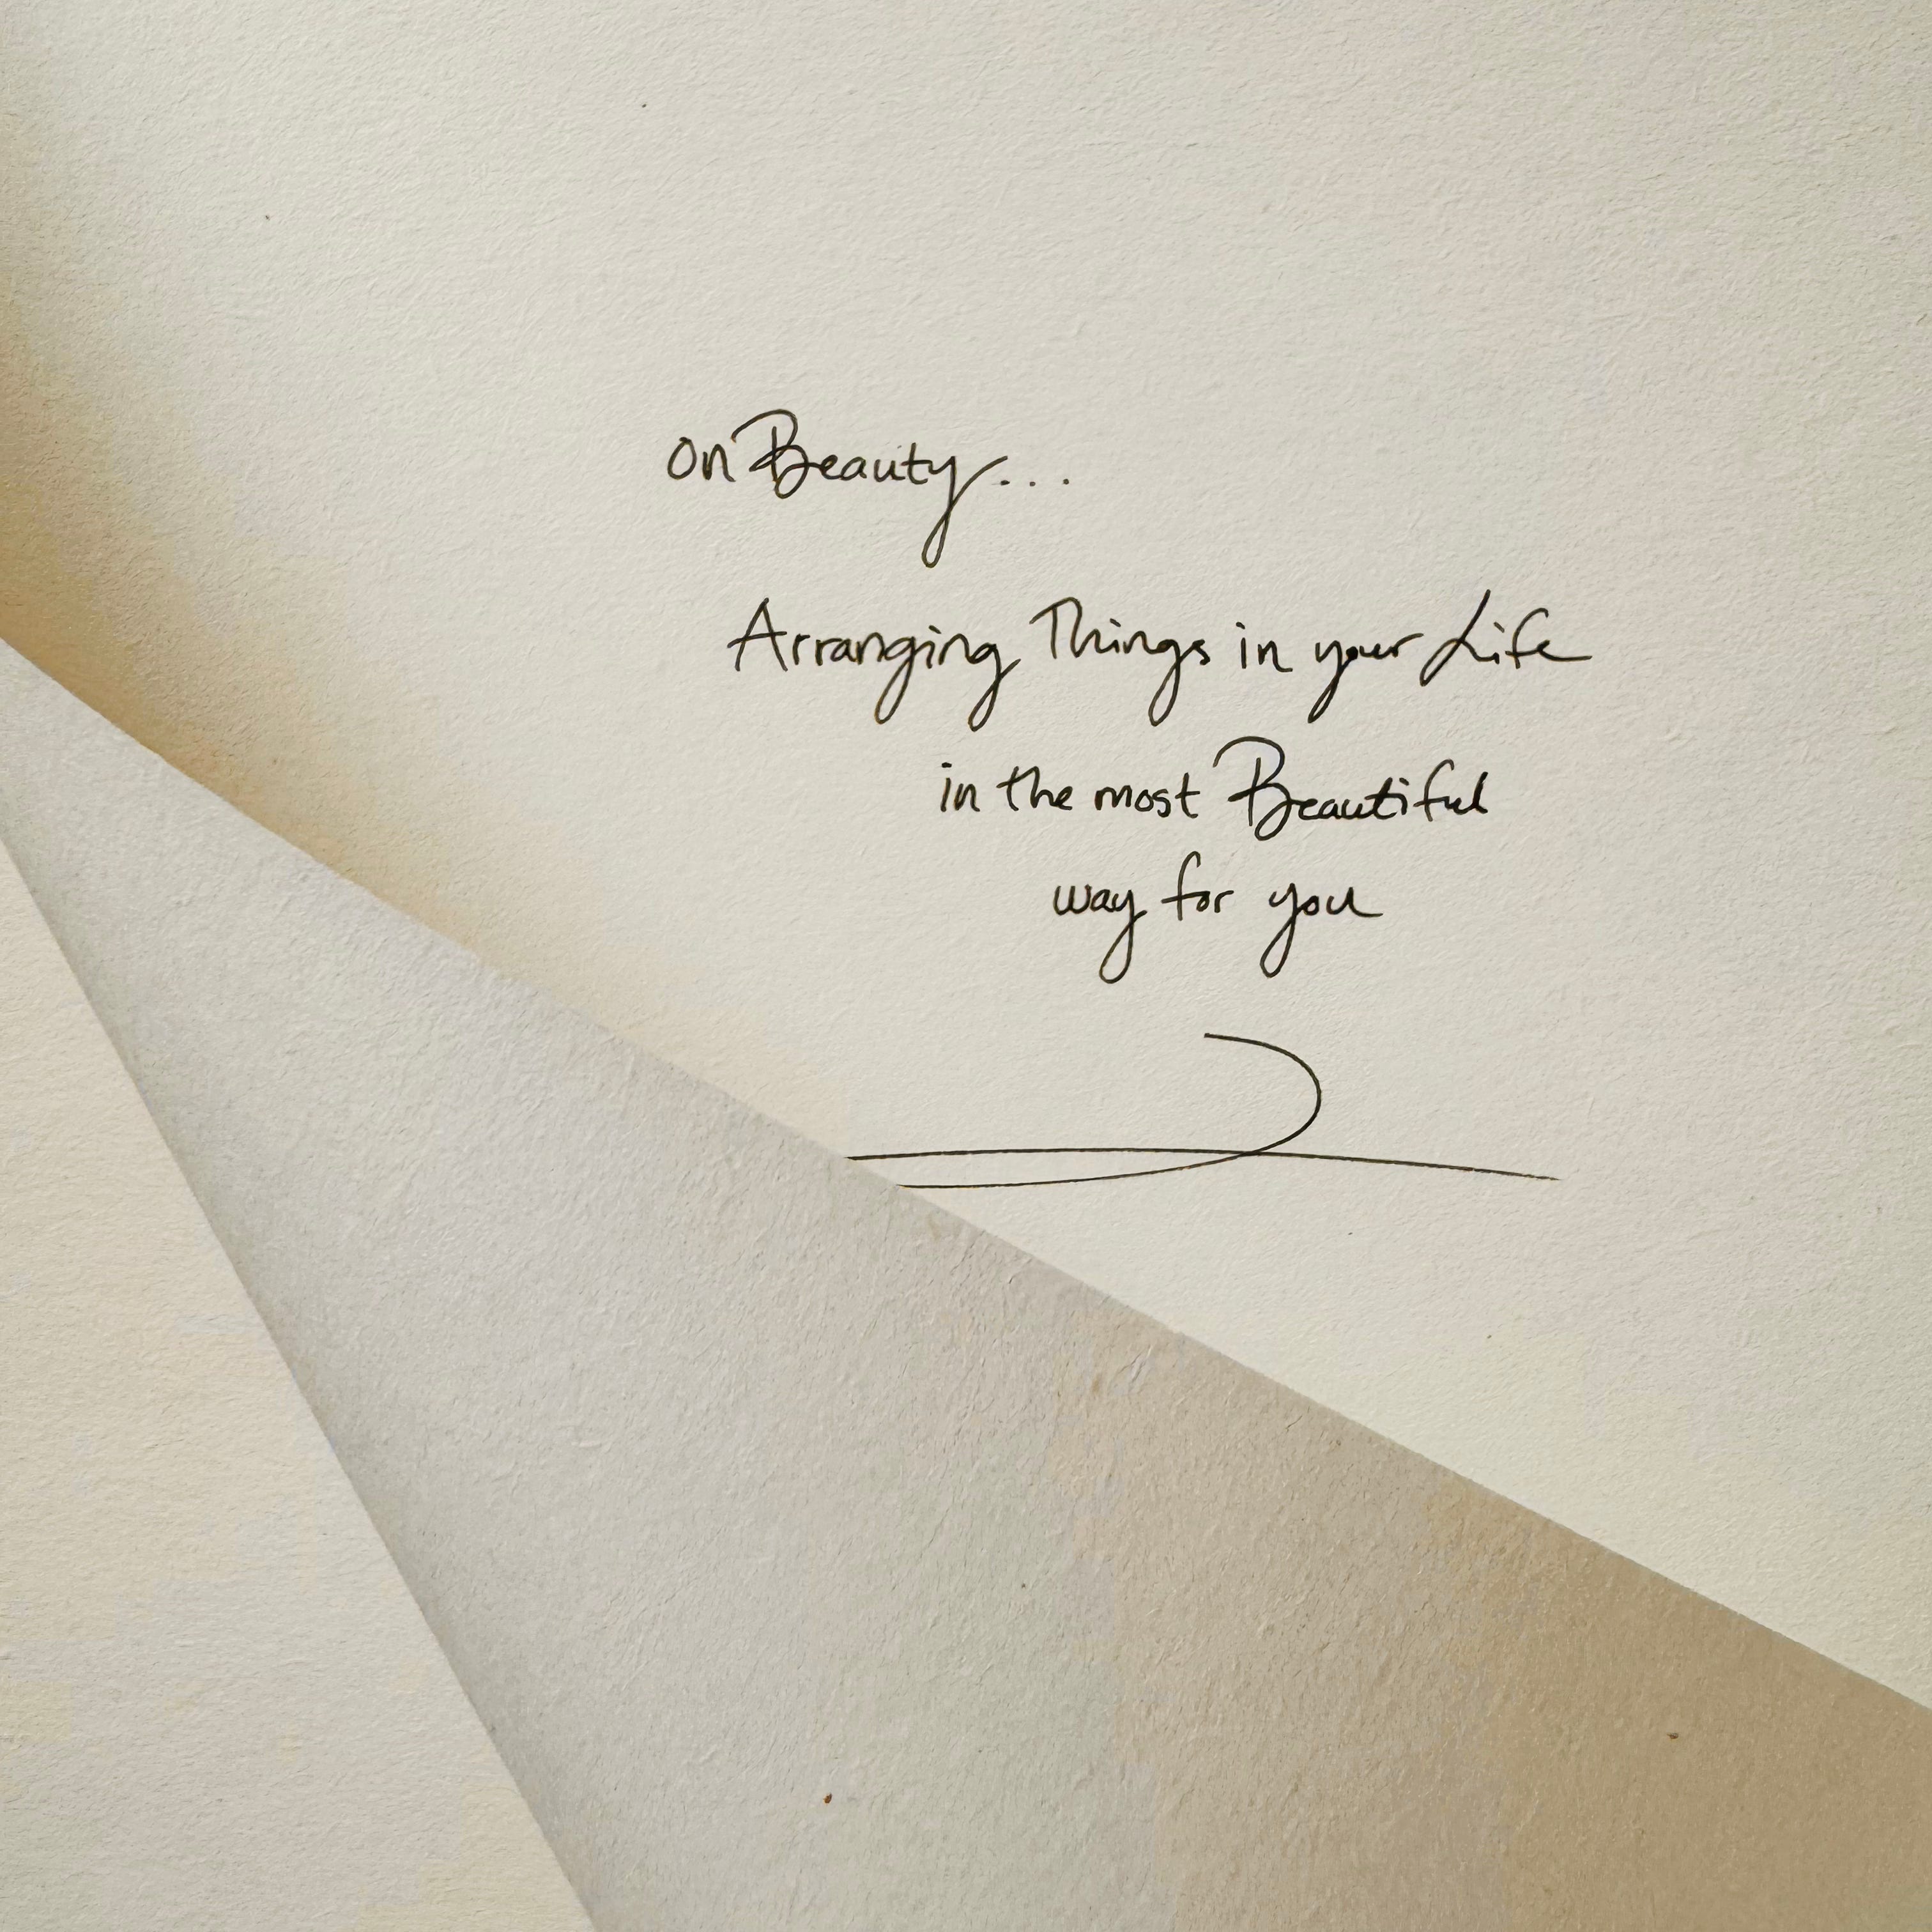 on Beauty...
Arranging Things in your Life
in the most Beautiful
way for you